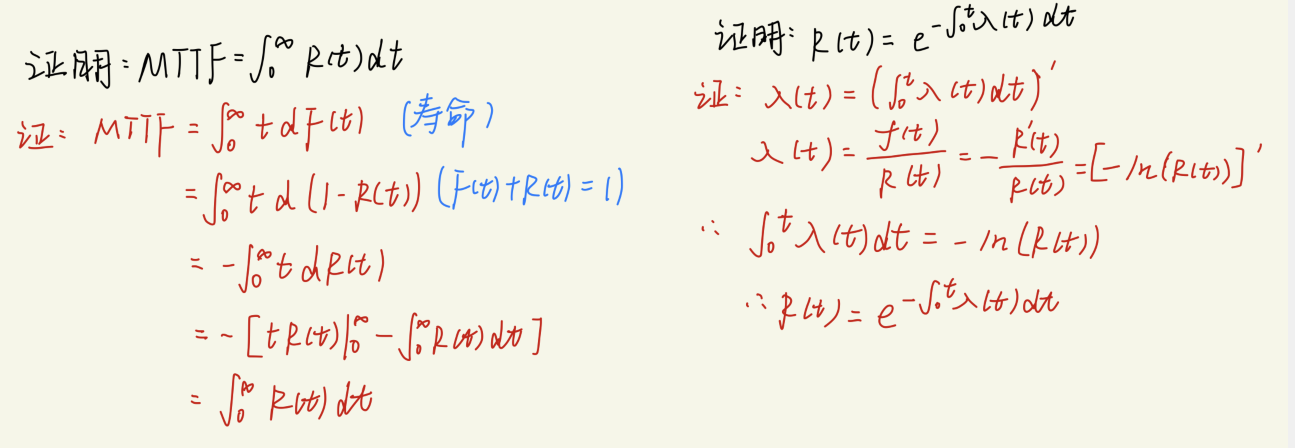 证明：MTTF=∫₀^∞ R(t)dt
证： MTTF = ∫₀^∞ t dF(t) (寿命)
= ∫₀^∞ t d (1-R(t)) (F(t)+R(t)=1)
= -∫₀^∞ t dR(t)
= -[tR(t)|₀^∞ - ∫₀^∞ R(t)dt]
= ∫₀^∞ R(t)dt
证明：R(t)= e^{-∫₀^t λ(t)dt}
证： λ(t)=(∫₀^t λ(t)dt)′
λ(t)= f(t)/R(t) = - R′(t)/R(t) = [-ln(R(t))]′
∴ ∫₀^t λ(t)dt = -ln(R(t))
∴ R(t)= e^{-∫₀^t λ(t)dt}